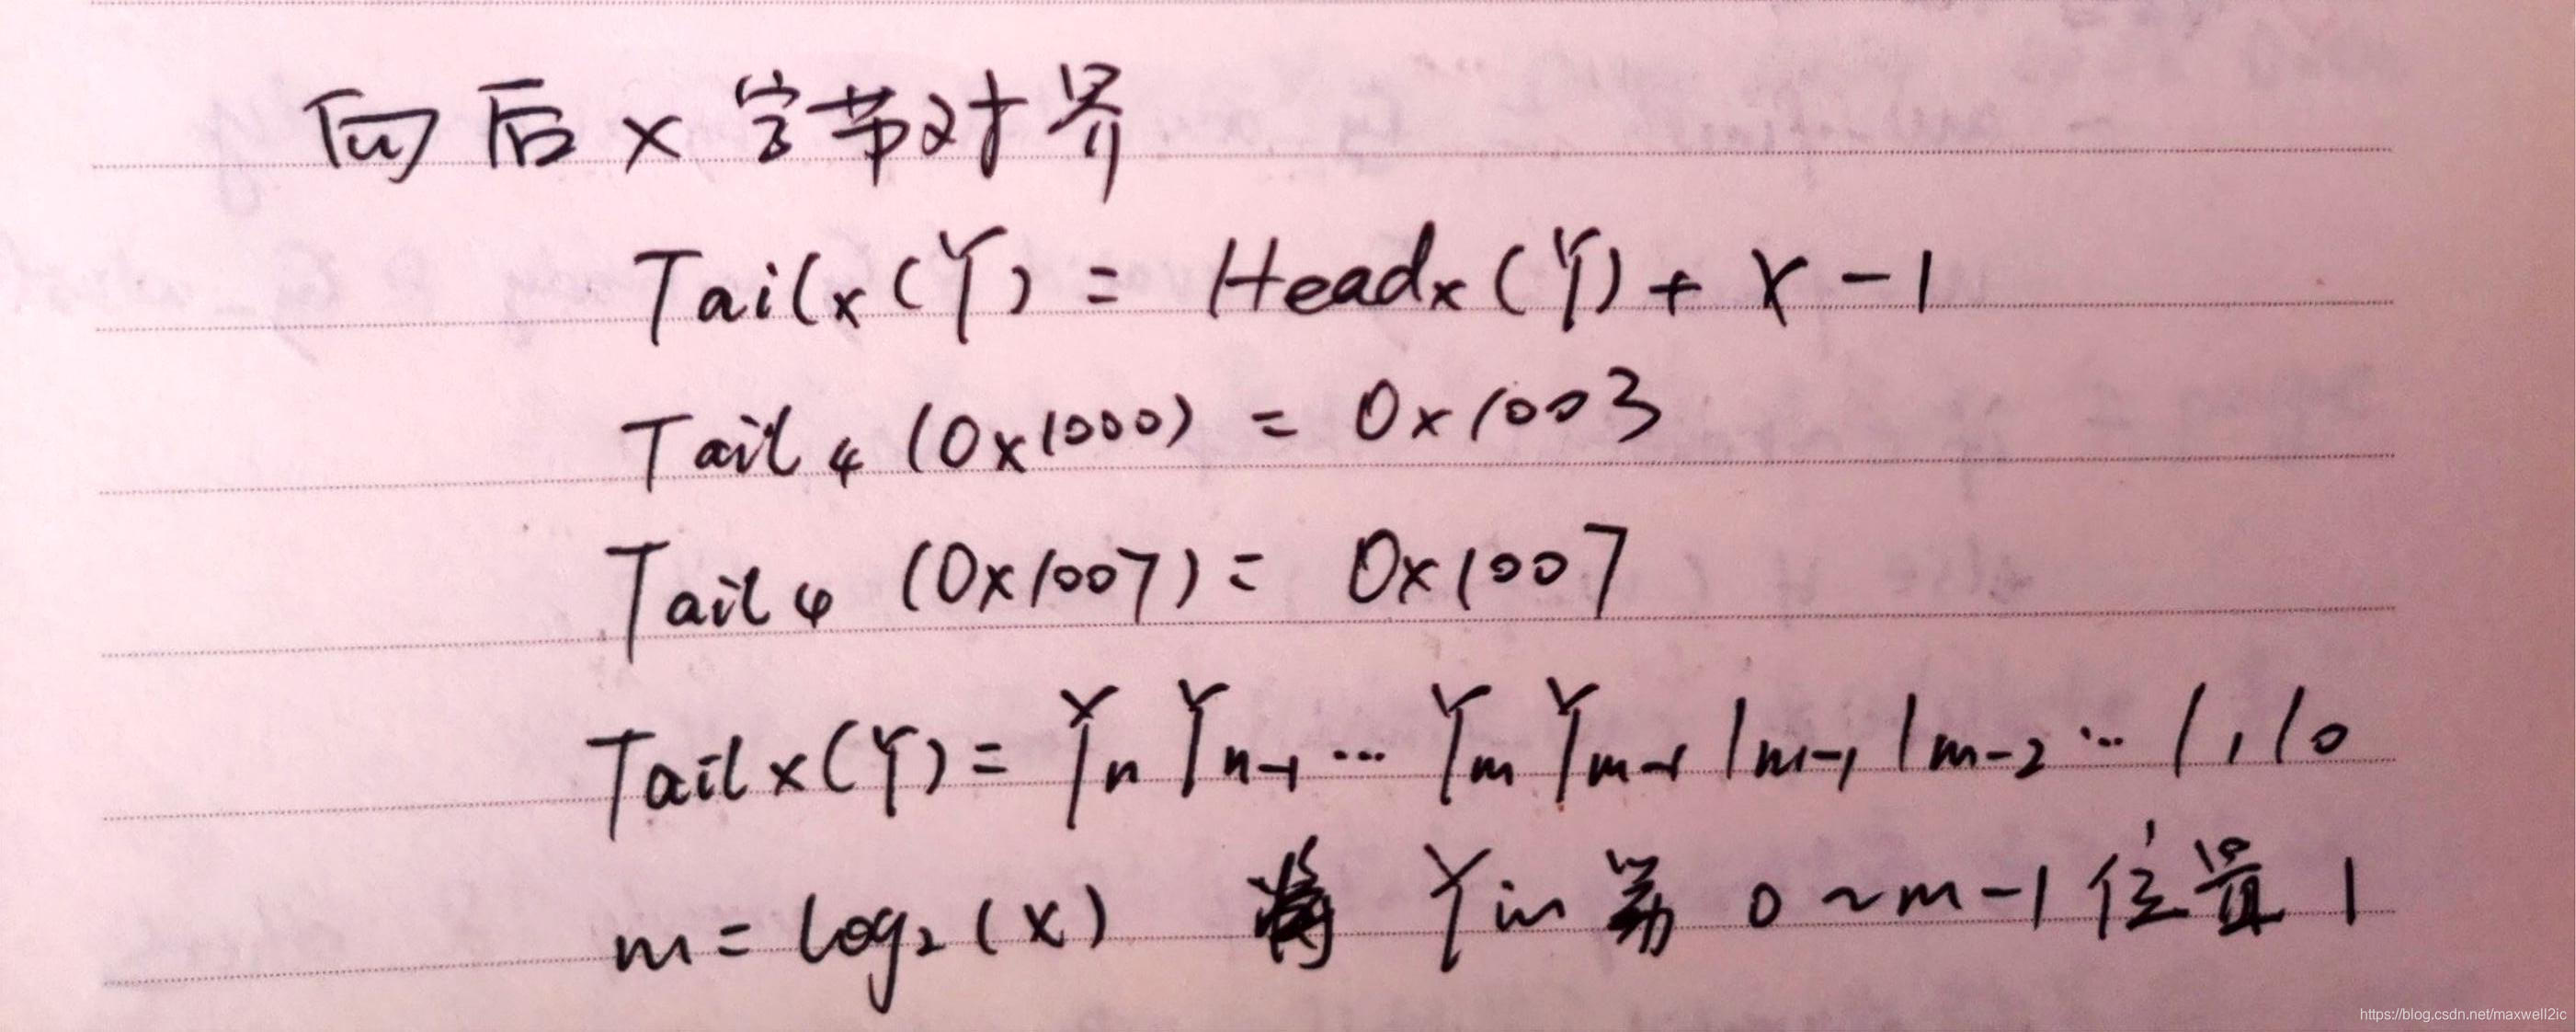 向后 x 字节对界
Tailx(Y) = Headx(Y) + X - 1
Tail4 (0x1000) = 0x1003
Tail4 (0x1007) = 0x1007
Tailx(Y) = Yn Yn-1 ... Ym Ym-1 1m-1 1m-2 ... 11 10
m = log2(x) 将 Y in 第 0 ~ m-1 位置 1
https://blog.csdn.net/maxwell2ic